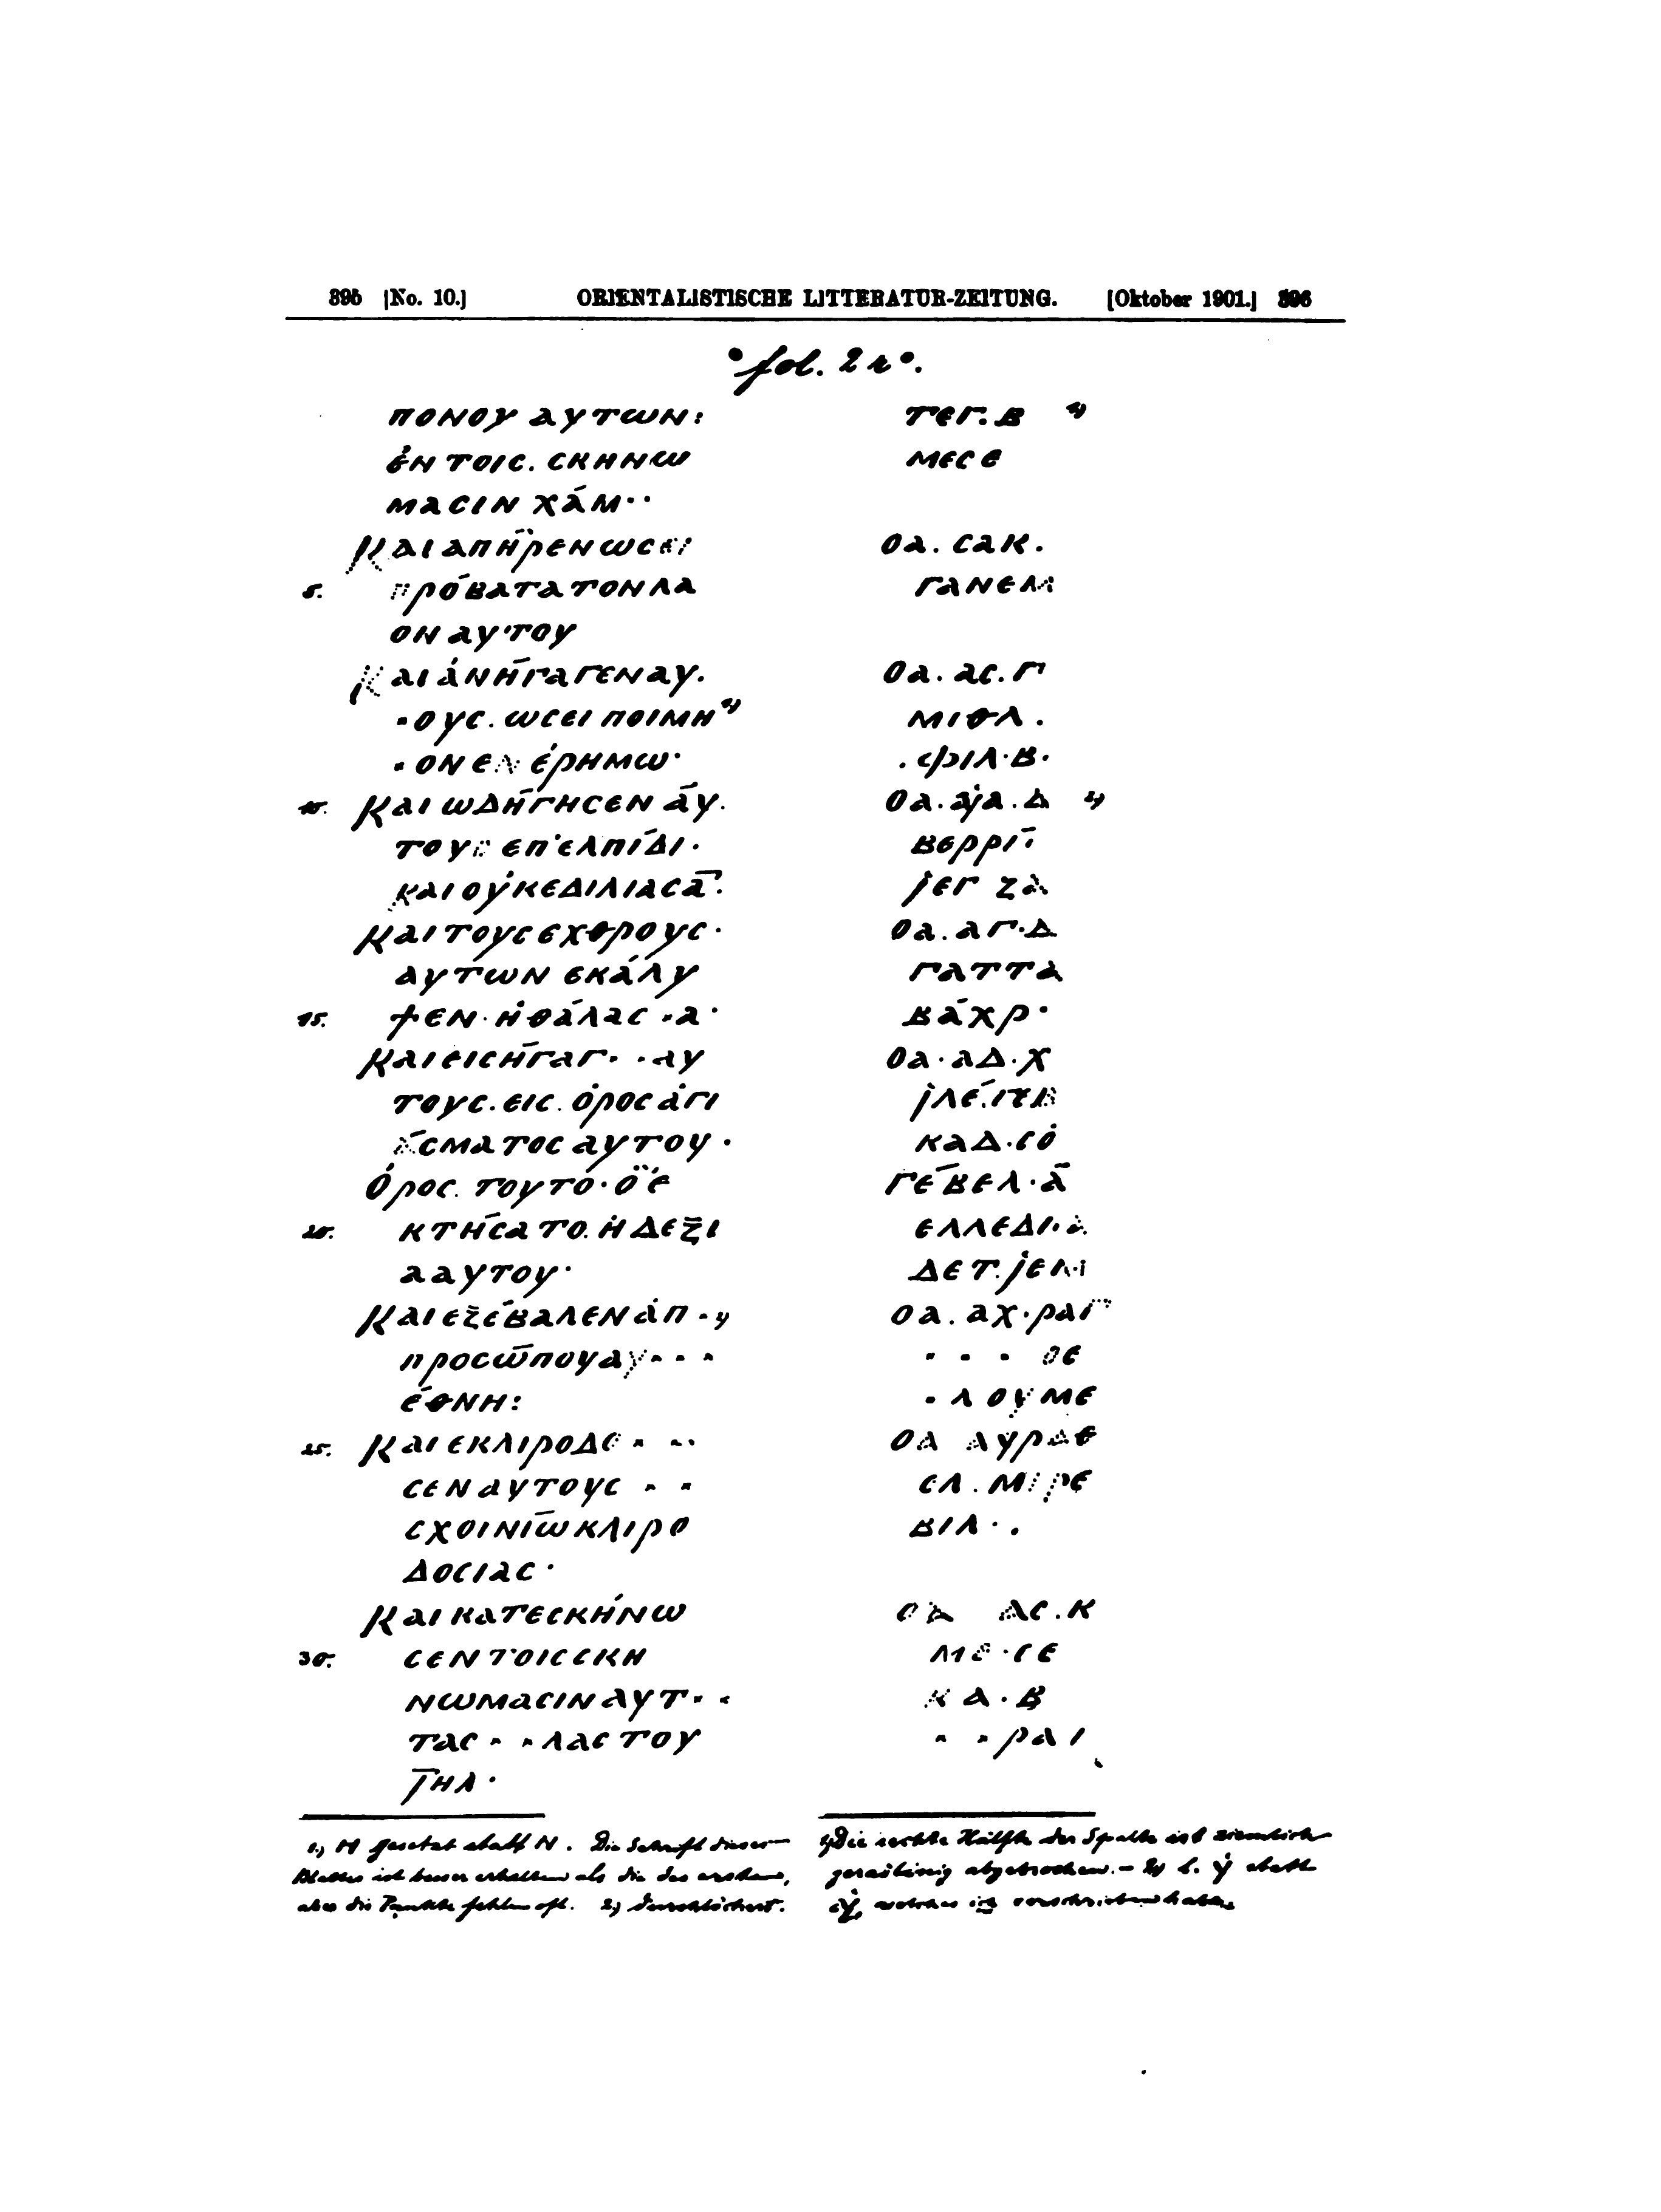 395 [No. 10.] ORIENTALISTISCHE LITTERATUR-ZEITUNG. [Oktober 1901.] 396
fol. 2 r°.
ΠΟΝΟΥ ΑΥΤΩΝ: ΤΕΓ.Β
ἐΝ ΤΟΙC. CΚΗΝΩ ΜΕCΕ
ΜΑCΙΝ ΧάΜ··
ΚΑΙ ΑΠΗΡΕΝ ΩCΕΙ ΟΑ. CΑΚ.
5. ΠΡόΒΑΤΑ ΤΟΝ ΛΑ ΓΑΝΕΜ
ΟΝ ΑΥΤΟΥ
ΚΑΙ ἀΝΗΓΑΓΕΝ ΑΥ. ΟΑ. ΑC. Γ
·ΟΥC. ΩCΕΙ ΠΟΙΜΗ ΜΙΘΛ.
·ΟΝ ΕΝ ἐΡΗΜΩ· .ΦΙΛ·Β·
10. ΚΑΙ ΩΔΗΓΗCΕΝ άΥ. ΟΑ. αjα.Δ
ΤΟΥC ΕΠ'ΕΛΠίΔΙ· ΒΕΡΡΙ
ΚΑΙ ΟΥΚ ΕΔΙΛΙΑCΑ. jΕΓ ΖΑ
ΚΑΙ ΤΟΥC ΕΧΘΡΟΥC· ΟΑ. ΑΓ·Δ
ΑΥΤΩΝ ΕΚάΛΥ ΓΑΤΤΑ
15. ΨΕΝ· Η ΘάΛΑC·Α· ΒάΧΡ·
ΚΑΙ ΕΙCΗΓΑΓ··ΑΥ ΟΑ·ΑΔ·Χ
ΤΟΥC. ΕΙC. ὀΡΟC ἀΓΙ
άCΜΑΤΟC ΑΥΤΟΥ· ΚΑΔ·CΟ
ὄΡΟC. ΤΟΥΤΟ·Ο Ε ΓέΒΕΛ·Α
20. ΚΤΗCΑΤΟ. Η ΔΕΞΙ ΕΛΛΕΔΙ·Α
Α ΑΥΤΟΥ· ΔΕΤ.jΕΜΙ
ΚΑΙ ΕΞέΒΑΛΕΝ ἀΠ· ΟΑ. ΑΧ·ΡΑΓ
ΠΡΟCΩΠΟΥ ΑΥ··· ··· ΘΕ
ἔΘΝΗ: ·ΛΟΥΜΕ
25. ΚΑΙ ΕΚΛΙΡΟΔΟ··· ΟΑ ΑΥΡΑΘ
CΕΝ ΑΥΤΟΥC ·· ΕΛ. ΜΙΡΕ
CΧΟΙΝΙΩ ΚΛΙΡΟ ΒΙΛ··
ΔΟCΙΑC·
ΚΑΙ ΚΑΤΕCΚΗΝΩ ΟΑ ΑC.Κ
30. CΕΝ ΤΟΙC CΚΗ ΜΕ·CΕ
ΝΩΜΑCΙΝ ΑΥΤ·· ΚΑ·Β
ΤΑC··ΛΑC ΤΟΥ ··ΡΑΙ
ΙΗΛ·
1.) Η gesetzt statt Ν. Die Schrift dieses
Blattes ist besser erhalten als die des ersten,
aber die Punkte fehlen oft. 2.) durchlöchert.
Die rechte Hälfte der Spalte ist ziemlich
geradlinig abgebrochen. – statt
welches ich verschrieben habe.